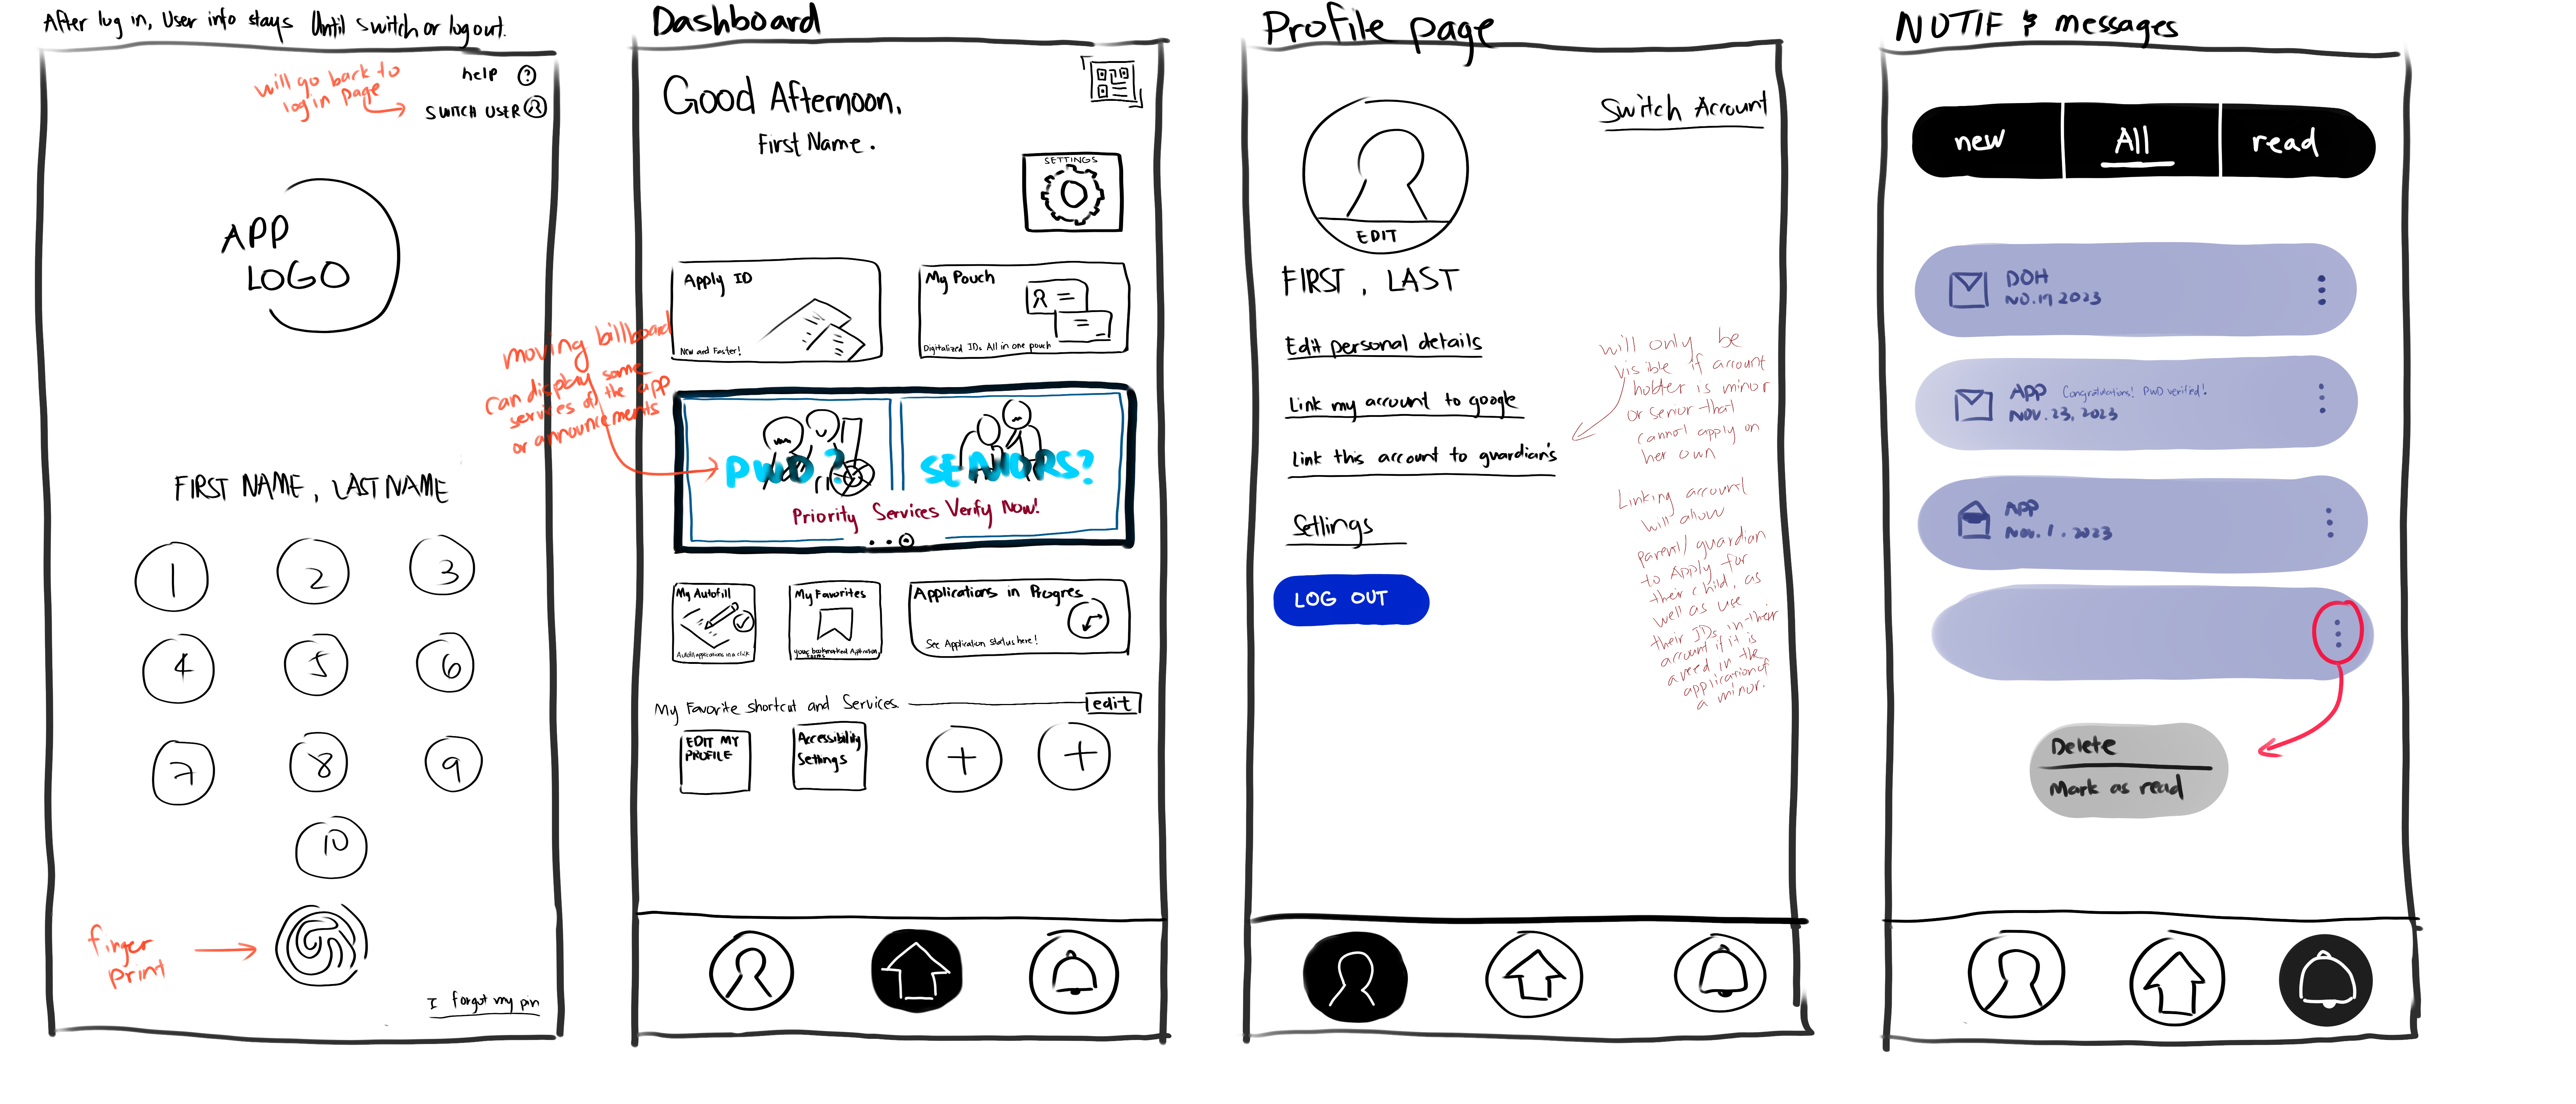 After log in, User info stays Until Switch or log out.
will go back to
log in page
help ?
SWITCH USER
APP
LOGO
FIRST NAME, LAST NAME
1 2 3
4 5 6
7 8 9
10
finger
print
I forgot my pin
Dashboard
Good Afternoon,
First Name.
SETTINGS
Apply ID
New and Faster!
My Pouch
Digitalized IDs All in one pouch
moving billboard
can display some
services of the app
or announcements
PWD?
SENIORS?
Priority Services Verify Now!
My Autofill
Autofill applications in a click
My Favorites
your bookmarked Application
forms
Applications in Progres
See Application status here!
My Favorite shortcut and Services.
edit
EDIT MY
PROFILE
Accessibility
Settings
+ +
Profile page
Switch Account
EDIT
FIRST, LAST
Edit personal details
Link my account to google
Link this account to guardian's
Settings
LOG OUT
will only be
visible if account
holder is minor
or senior that
cannot apply on
her own
Linking account
will allow
parent/guardian
to Apply for
their child, as
well as use
their IDs in their
account if it is
a need in the
application of
a minor.
NOTIF & messages
new All read
DOH
NO. 17 2023
APP Congratulations! PWD verified!
NOV. 23, 2023
APP
Nov. 1. 2023
Delete
Mark as read